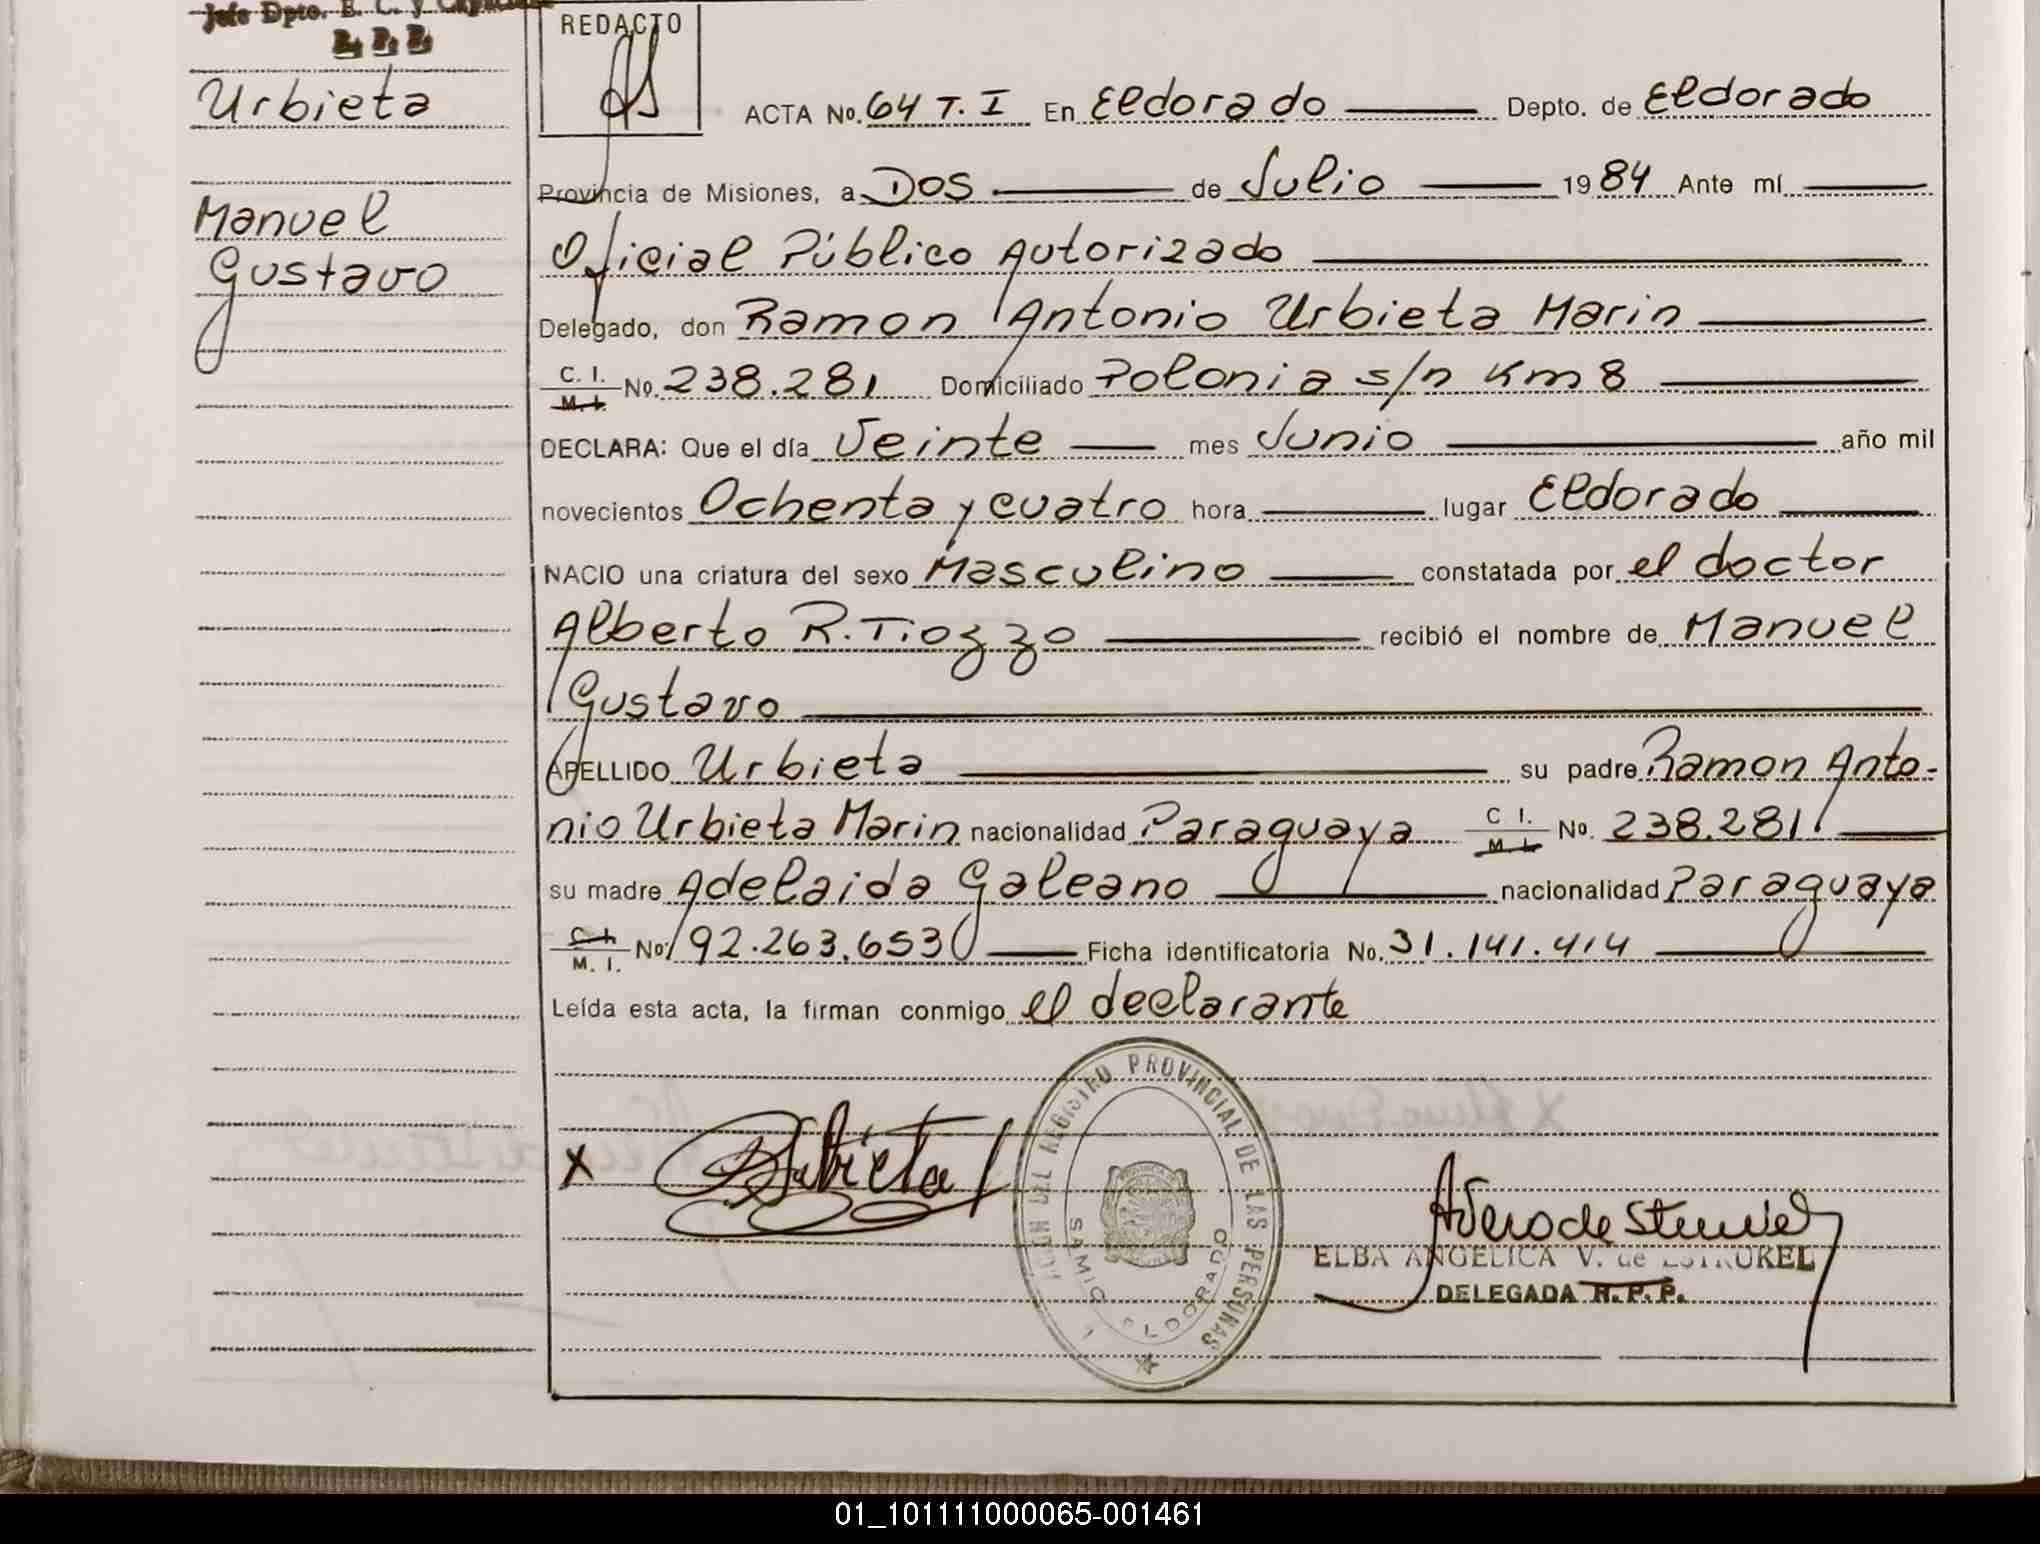 Jefe Dpto. E. C. y
R. P. P.
Urbieta
Manuel
Gustavo
REDACTO
ACTA No. 64 T. I En Eldorado Depto. de Eldorado
Provincia de Misiones, a Dos de Julio 1984 Ante mí
Oficial Público Autorizado
Delegado, don Ramon Antonio Urbieta Marin
C. I. M. I. No. 238.281 Domiciliado Polonia s/n Km 8
DECLARA: Que el día Veinte mes Junio año mil
novecientos Ochenta y cuatro hora lugar Eldorado
NACIO una criatura del sexo Masculino constatada por el doctor
Alberto R. Tiozzo recibió el nombre de Manuel
Gustavo
APELLIDO Urbieta su padre Ramon Anto-
nio Urbieta Marin nacionalidad Paraguaya C I. M. I. No. 238.281
su madre Adelaida Galeano nacionalidad Paraguaya
C. I. M. I. No. 92.263.653 Ficha identificatoria No. 31.141.414
Leída esta acta, la firman conmigo el declarante
DEL REGISTRO PROVINCIAL DE LAS PERSONAS
SAMIC ELDORADO
x Urbieta
ELBA ANGELICA V. de
DELEGADA R. P. P.
01_101111000065-001461